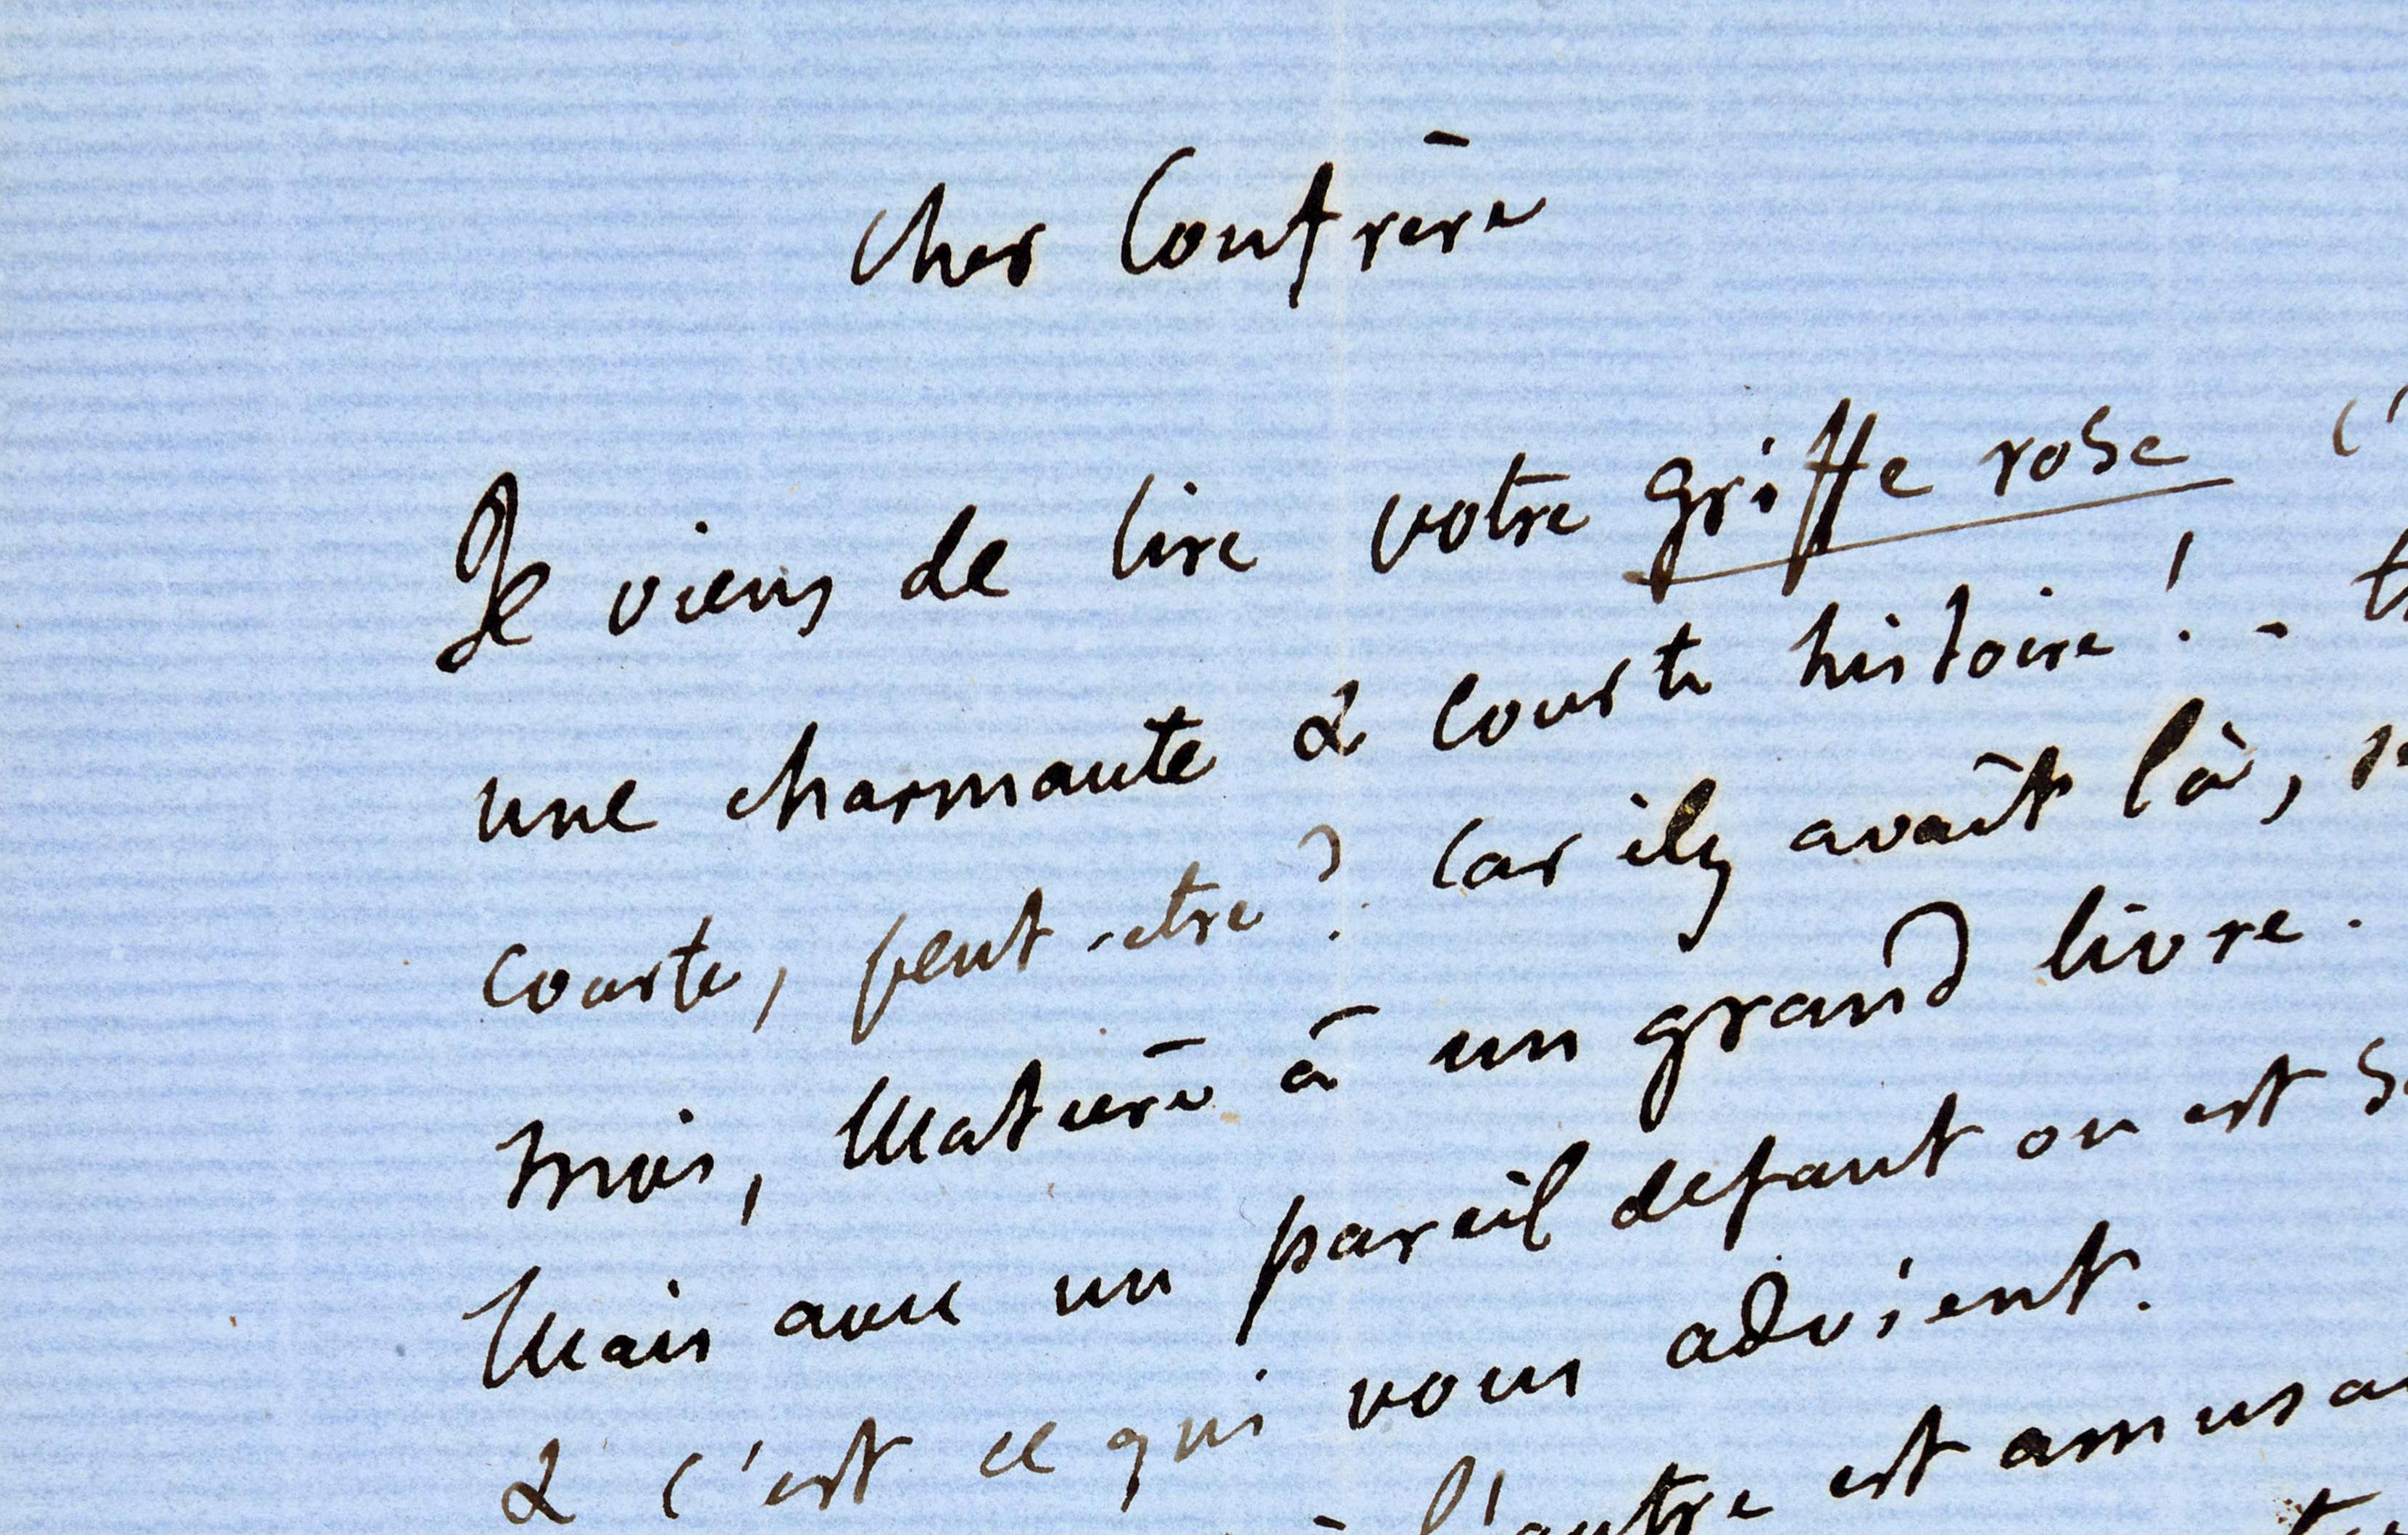 Cher Confrère
Je viens de lire votre griffe rose c'
une charmante & courte histoire! - t
courte, peut-etre? Car il y avait là,
mois, Matière à un grand livre.
Mais avec un pareil defaut on est s
& c'est ce qui vous advient.
à l'autre est amusa